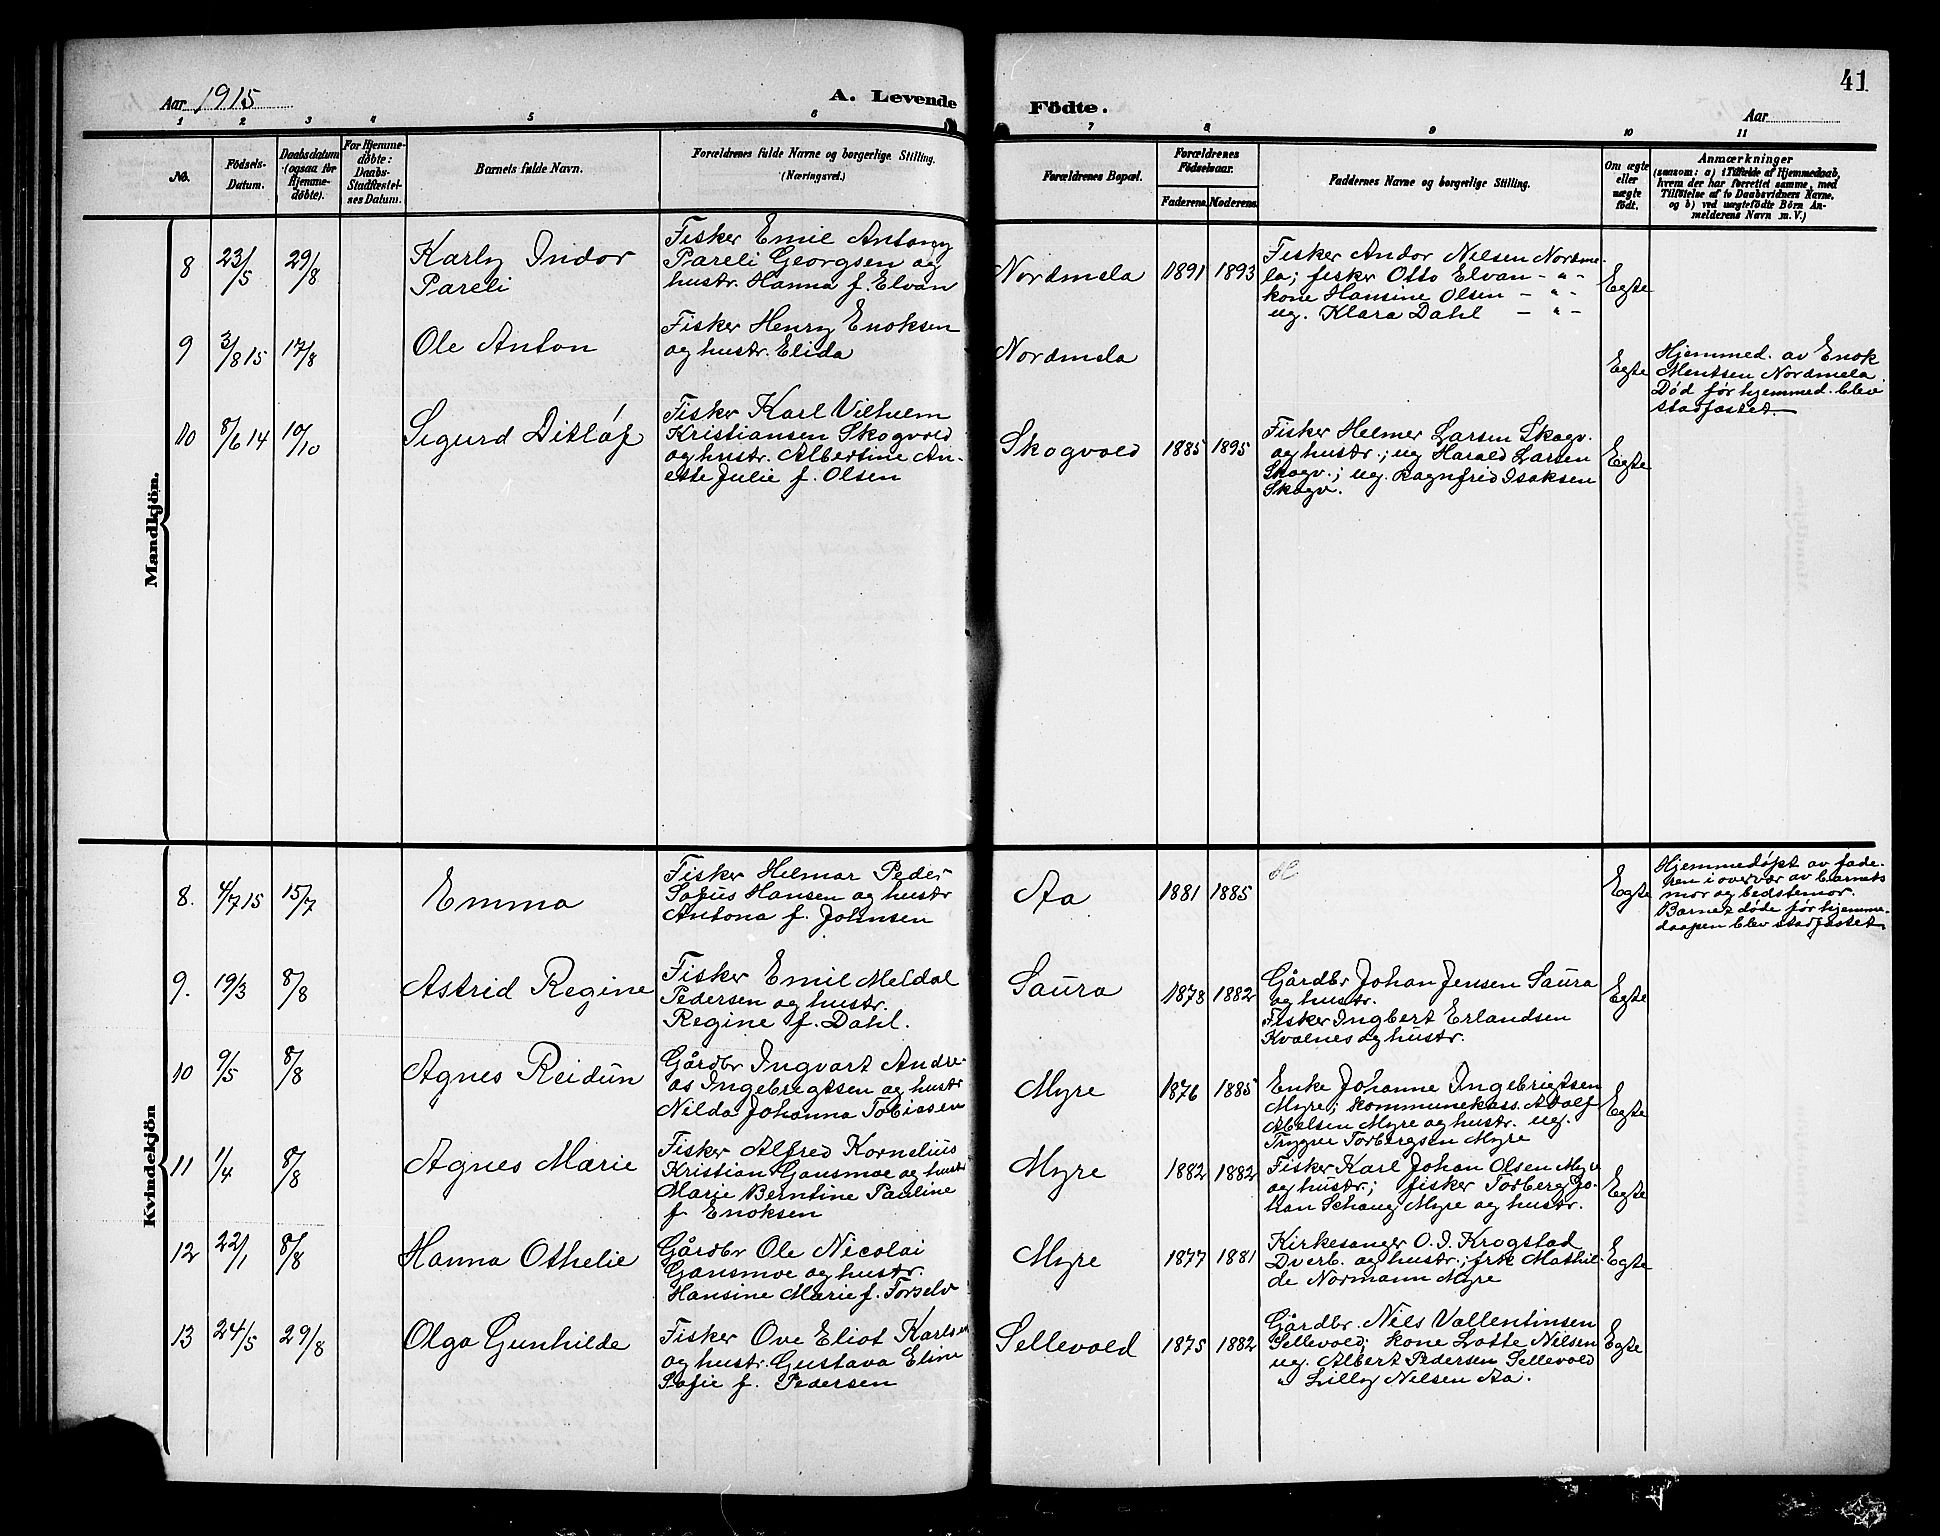 Aar 1915
A. Levende
Födte.
41
Aar
1 2 3 4 5 6 7 8 9 10 11
No.
Födsels-
Datum.
Daabsdatum
(ogsaa for
Hjemme-
döbte).
For Hjemme-
döbte:
Daabs-
Stadfæstel-
ses Datum.
Barnets fulde Navn.
Forældrenes fulde Navne og borgerlige Stilling.
(Næringsvei.)
Forældrenes Bopæl.
Forældrenes
Födselsaar.
Faderens. Moderens.
Faddernes Navne og borgerlige Stilling.
Om ægte
eller
uægte
födt.
Anmærkninger
(saasom: a) i Tilfælde af Hjemmedaab,
hvem der har forrettet samme, med
Tilföielse af to Daabsvidners Navne,
og b) ved uægtefödte Börn An-
melderens Navn m. V.)
Mandkjön.
8 23/5 29/8
Karly Indor
Pareli
Fisker Emil Antony
Pareli Georgsen og
hustr. Hanna f. Elvan
Nordmela 1891 1893
Fisker Andor Nilsen Nordme-
la; fisker Otto Elvan - " -
kone Hansine Olsen - " -
ug. Klara Dahl - " -
Egte
9 3/8 15 17/8
Ole Anton
Fisker Henry Enoksen
og hustr. Elida
Nordmela
Egte
Hjemmed. av Enok
Mentsen Nordmela
Død før hjemmed. blev
stadfæstet.
10 8/6 14 10/10
Sigurd Ditløf
Fisker Karl Vilhelm
Kristiansen Skogvold
og hustr. Albertine An-
ette Julie f. Olsen
Skogvold 1885 1895
Fisker Helmer Larsen Skogv.
og hustr.; ug Harald Larsen
Skogv.; ug. Ragnfrid Isaksen
Skogv.
Egte
Kvindekjön
8. 4/7 15 15/7
Emma
Fisker Helmar Peder
Sofus Hansen og hustr
Antona f. Johnsen
Aa 1881 1885
Egte
Hjemmedøpt av fade-
ren i overvær av barnets
mor og bedstemor.
Barnet døde før hjemme-
daapen blev stadfæstet.
9. 19/3 8/8
Astrid Regine
Fisker Emil Meldal
Pedersen og hustr.
Regine f. Dahl.
Saura 1878 1882
Gårdbr Johan Jensen Saura
og hustr.
Fisker Ingbert Erlandsen
Kvalnes og hustr.
Egte
10 9/5 8/8
Agnes Reidun
Gårdbr Ingvart Andre-
as Ingebregtsen og hustr
Nilda Johanna Tobiasen
Myre 1876 1885
Enke Johanne Ingebrigtsen
Myre; kommunekass. Adolf
Abelsen Myre og hustr. ug.
Trygve Torbergsen Myre
Egte
11 1/4 8/8
Agnes Marie
Fisker Alfred Kornelius
Kristian Gansmoe og hustr
Marie Berntine Pauline
f. Enoksen
Myre 1882 1882
Fisker Karl Johan Olsen Myr
og hustr; fisker Torberg Jo-
han Schang Myre og hustr.
Egte
12 22/1 8/8
Hanna Othelie
Gårdbr Ole Nicolai
Gansmoe og hustr.
Hansine Marie f. Forselv
Myre 1877 1881
Kirkesanger O. J. Krogstad
Dverb. og hustr.; frk Mathil-
de Normann Myre
Egte
13 24/5 29/8
Olga Gunhilde
Fisker Ove Eliot Karlsen
og hustr. Gustava Eline
Sofie f. Pedersen
Sellevold 1875 1882
Gårdbr. Nils Vallentinsen
Sellevold; kone Lotte Nilsen
ug. Albert Pedersen Sellevold
" Lilly Nilsen Aa.
Egte